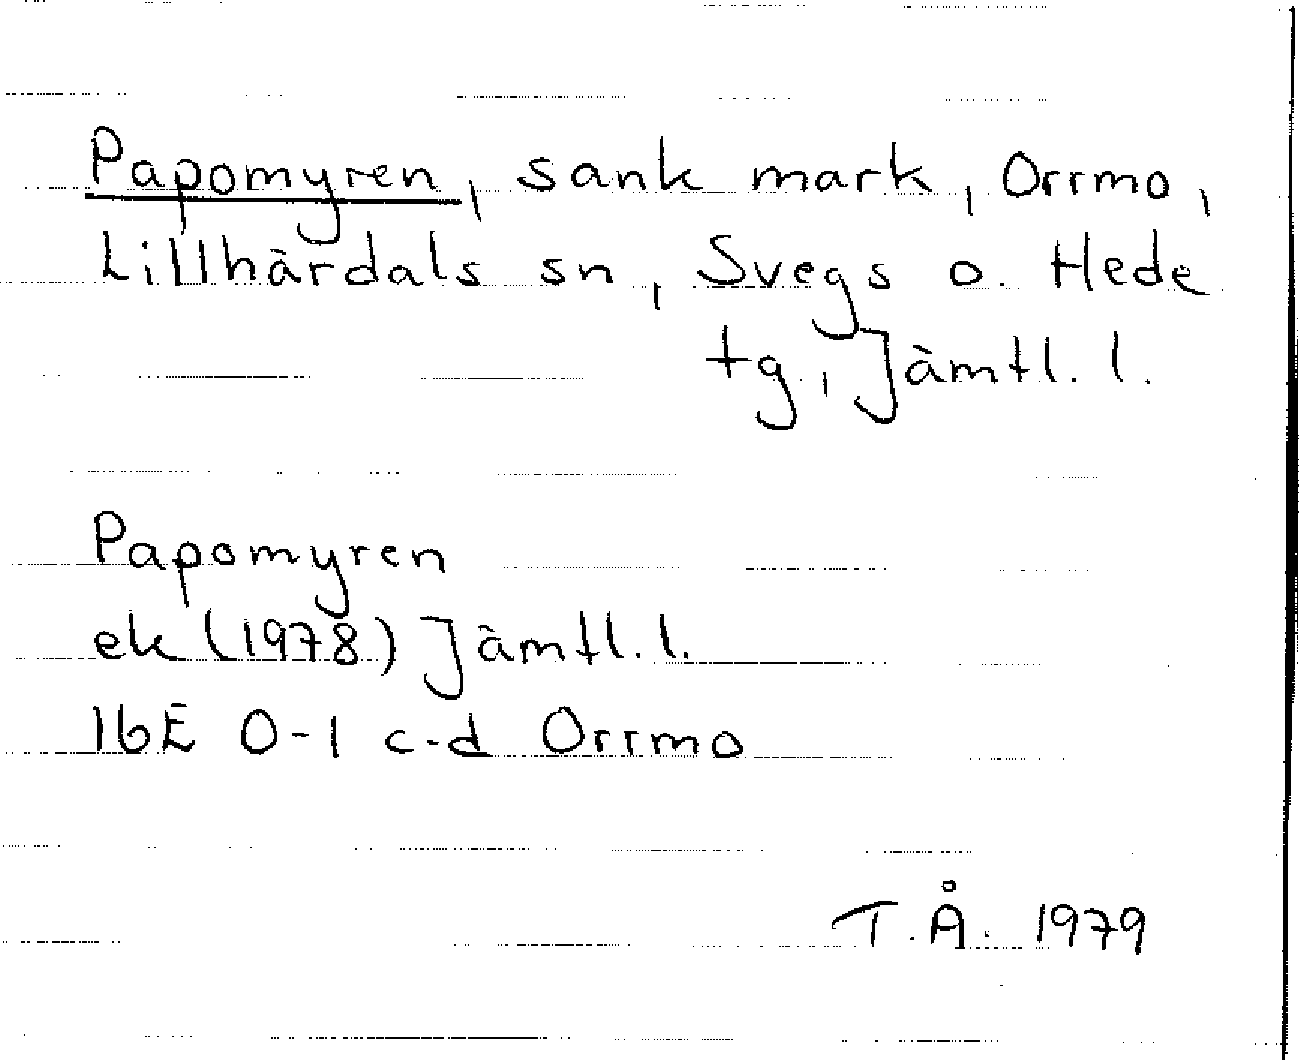 Papomyren, sank mark, Orrmo,
Lillhärdals sn, Svegs o. Hede
tg, Jämtl. l.
Papomyren
ek (1978) Jämtl. l.
16E 0-1 c-d Orrmo
T.Å. 1979